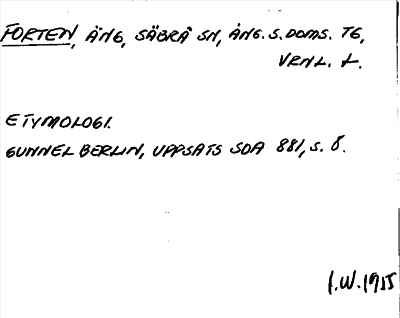 FORTEN, ÄNG, SÄBRÅ SN, ÅNG. S. DOMS. TG,
VRNL. L.
ETYMOLOGI.
GUNNEL BERLIN, UPPSATS SOA 881, S. 8.
I.W. 1955